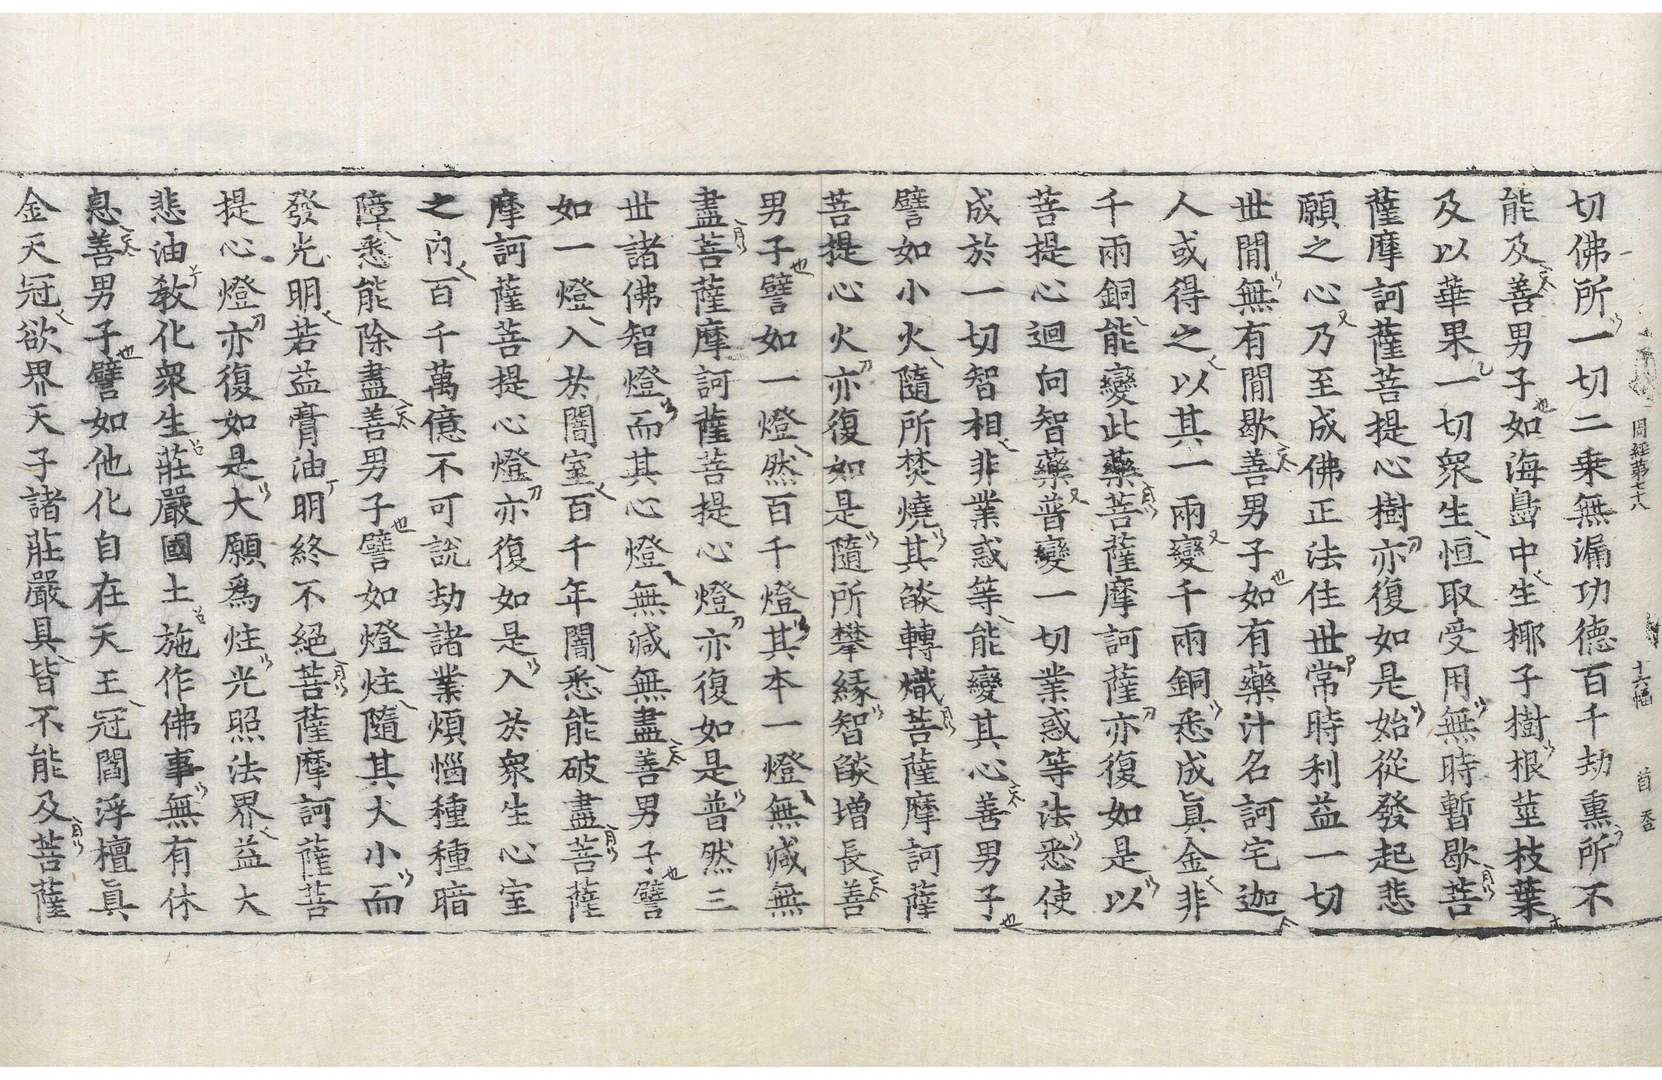 周經第七十八 十六幅
切佛所一切二乘無漏功德百千劫熏所不
能及善男子如海島中生椰子樹根莖枝葉
及以華果一切衆生恒取受用無時暫歇菩
薩摩訶薩菩提心樹亦復如是始從發起悲
願之心乃至成佛正法住世常時利益一切
世間無有閒歇善男子如有藥汁名訶宅迦
人或得之以其一兩變千兩銅悉成真金非
千兩銅能變此藥菩薩摩訶薩亦復如是以
菩提心迴向智藥普變一切業惑等法悉使
成於一切智相非業惑等能變其心善男子
譬如小火隨所焚燒其燄轉熾菩薩摩訶薩
菩提心火亦復如是隨所攀緣智燄增長善
男子譬如一燈然百千燈其本一燈無減無
盡菩薩摩訶薩菩提心燈亦復如是普然三
世諸佛智燈而其心燈無減無盡善男子譬
如一燈入於闇室百千年闇悉能破盡菩薩
摩訶薩菩提心燈亦復如是入於衆生心室
之內百千萬億不可說劫諸業煩惱種種暗
障悉能除盡善男子譬如燈炷隨其大小而
發光明若益膏油明終不絕菩薩摩訶薩菩
提心燈亦復如是大願爲炷光照法界益大
悲油教化衆生莊嚴國土施作佛事無有休
息善男子譬如他化自在天王冠閻浮檀真
金天冠欲界天子諸莊嚴具皆不能及菩薩